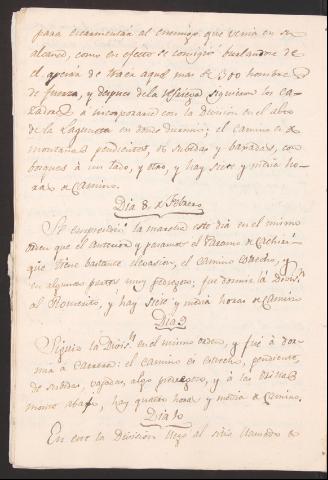 para escarmentar al enemigo que venia en su
alcance, como en efecto se consiguió burlandose de
el apesar de traer aquel mas de 1300 hombres
de fuerza, y despues de la refriega siguieron los Ca-
zadores á incorporarse con la Division en el alto
de la Laguneta en donde durmió; el camino es de
montañas pendientes, de subidas y baxadas, con
bosques á un lado, y otro, y hay siete y media ho-
ras de camino.
Dia 8 de Febrero
Se emprendió la marcha este dia en el mismo
orden que el anterior y pasamos el Paramo de Cachiri
que tiene bastante elevacion, el camino estrecho, y
en algunas partes muy pedregoso, fue á dormir la Divis.n
al Romerito, y hay siete y media horas de camino
Dia 9
Siguió la Divis.n en el mismo orden, y fué á dor-
mir á Cacota: el camino es estrecho, pendiente,
de subidas, vajadas, algo pedregoso, y á las orillas
monte abajo, hay quatro horas y media de camino.
Dia 10
En este la Division llegó al sitio llamado de